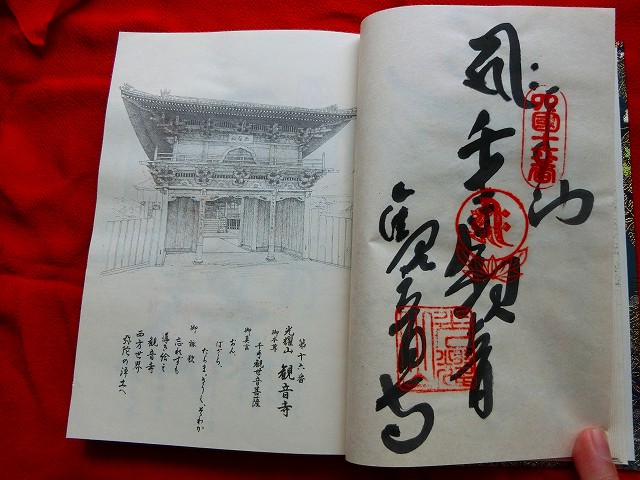 四国十六番
千手観音
観音寺
第十六番
光耀山 観音寺
御本尊
千手観世音菩薩
御真言
おん、
ばざら、
たらま、きりーく、そわか
御詠歌
忘れずも
導き給え
観音寺
西方世界
弥陀の浄土へ